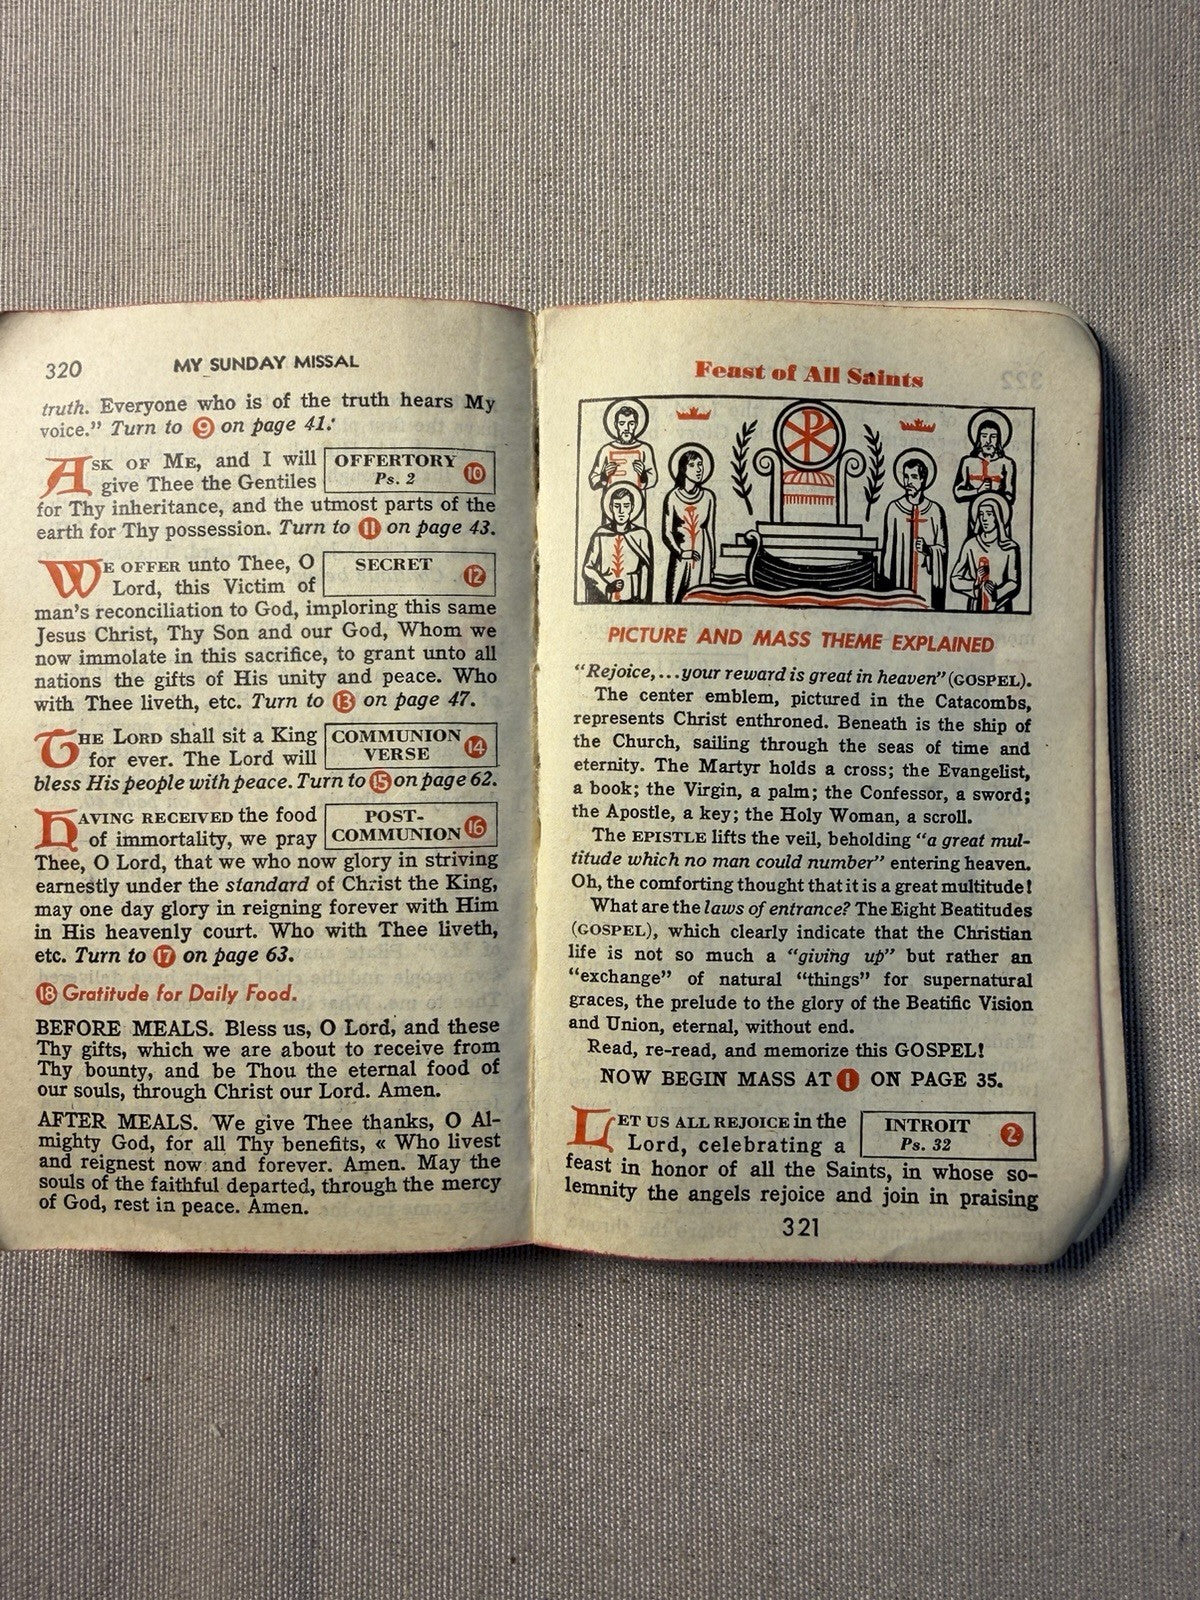 320 MY SUNDAY MISSAL
truth. Everyone who is of the truth hears My
voice." Turn to 9 on page 41.
ASK OF ME, and I will
give Thee the Gentiles
OFFERTORY
Ps. 2
10
for Thy inheritance, and the utmost parts of the
earth for Thy possession. Turn to 11 on page 43.
WE OFFER unto Thee, O
Lord, this Victim of
SECRET
12
man's reconciliation to God, imploring this same
Jesus Christ, Thy Son and our God, Whom we
now immolate in this sacrifice, to grant unto all
nations the gifts of His unity and peace. Who
with Thee liveth, etc. Turn to 13 on page 47.
THE LORD shall sit a King
for ever. The Lord will
COMMUNION
VERSE
14
bless His people with peace. Turn to 15 on page 62.
HAVING RECEIVED the food
of immortality, we pray
POST-
COMMUNION
16
Thee, O Lord, that we who now glory in striving
earnestly under the standard of Christ the King,
may one day glory in reigning forever with Him
in His heavenly court. Who with Thee liveth,
etc. Turn to 17 on page 63.
18 Gratitude for Daily Food.
BEFORE MEALS. Bless us, O Lord, and these
Thy gifts, which we are about to receive from
Thy bounty, and be Thou the eternal food of
our souls, through Christ our Lord. Amen.
AFTER MEALS. We give Thee thanks, O Al-
mighty God, for all Thy benefits, « Who livest
and reignest now and forever. Amen. May the
souls of the faithful departed, through the mercy
of God, rest in peace. Amen.
Feast of All Saints
PICTURE AND MASS THEME EXPLAINED
"Rejoice,...your reward is great in heaven" (GOSPEL).
The center emblem, pictured in the Catacombs,
represents Christ enthroned. Beneath is the ship of
the Church, sailing through the seas of time and
eternity. The Martyr holds a cross; the Evangelist,
a book; the Virgin, a palm; the Confessor, a sword;
the Apostle, a key; the Holy Woman, a scroll.
The EPISTLE lifts the veil, beholding "a great mul-
titude which no man could number" entering heaven.
Oh, the comforting thought that it is a great multitude!
What are the laws of entrance? The Eight Beatitudes
(GOSPEL), which clearly indicate that the Christian
life is not so much a "giving up" but rather an
"exchange" of natural "things" for supernatural
graces, the prelude to the glory of the Beatific Vision
and Union, eternal, without end.
Read, re-read, and memorize this GOSPEL!
NOW BEGIN MASS AT 1 ON PAGE 35.
LET US ALL REJOICE in the
Lord, celebrating a
INTROIT
Ps. 32
2
feast in honor of all the Saints, in whose so-
lemnity the angels rejoice and join in praising
321